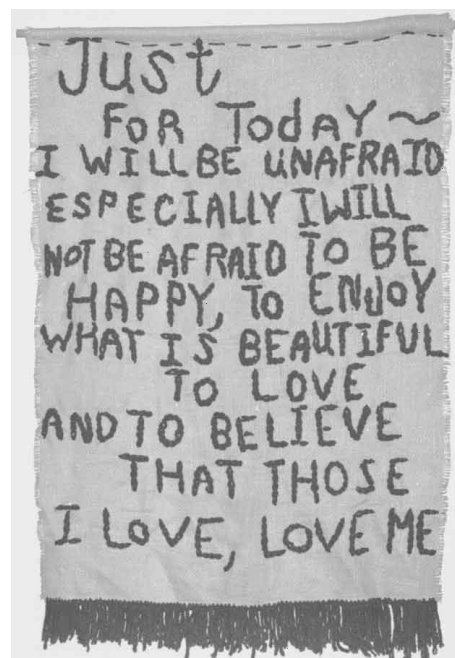 Just
FOR TodAY ~
I WILL BE UNAFRAID
ESPECIALLY I WILL
NOT BE AFRAID TO BE
HAPPY, TO ENJOY
WHAT IS BEAUTIFUL
TO LOVE
AND TO BELIEVE
THAT THOSE
I LOVE, LOVE ME